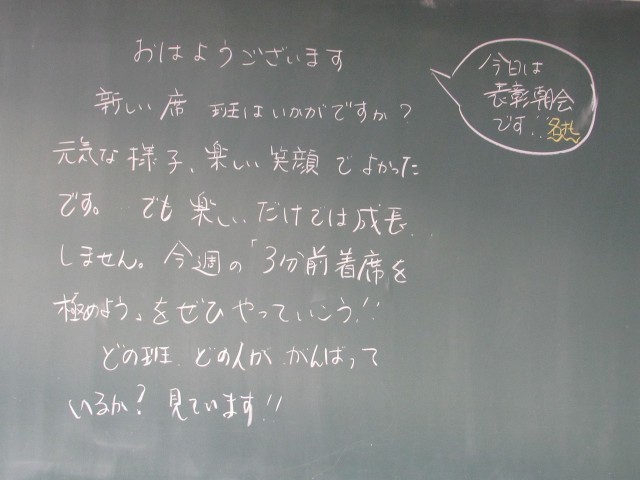 おはようございます
新しい席 班はいかがですか?
元気な様子、楽しい笑顔でよかった
です。 でも楽しいだけでは成長
しません。今週の「3分前着席を
極めよう」をぜひやっていこう!!
どの班、どの人が がんばって
いるか? 見ています!!
今日は
表彰朝会
です!!